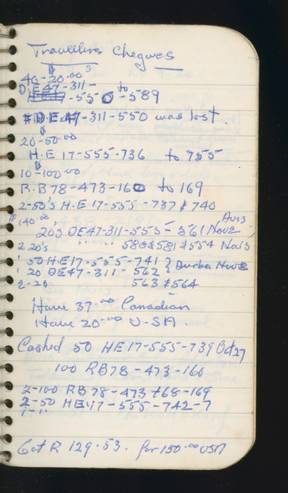 Travellers Cheques
40-20.00$
DE47-311-
-550 to -589
# DE47-311-550 was lost.
20-50.00$
HE 17-555-736 to 755
10-100.00$
RB78-473-160 to 169
2-50's H.E 17-555-737 & 740
$140.00 Avis
20s DE47-311-555-561 Nov 2
2 20's 580 & 581 & 554 Nov 3
1 50 HE17-555-741 } Durban Nov 2
1 20 DE47-311-562
2-20 563 & 564
Have 37.00 Canadian
Have 20.00 U-SA.
Cashed 50 HE17-555-739 Oct 27
100 RB78-473-160
2-100 RB78-473 168-169
2-50 HE17-555-742-7
Got R 129.53. for 150.00 USA